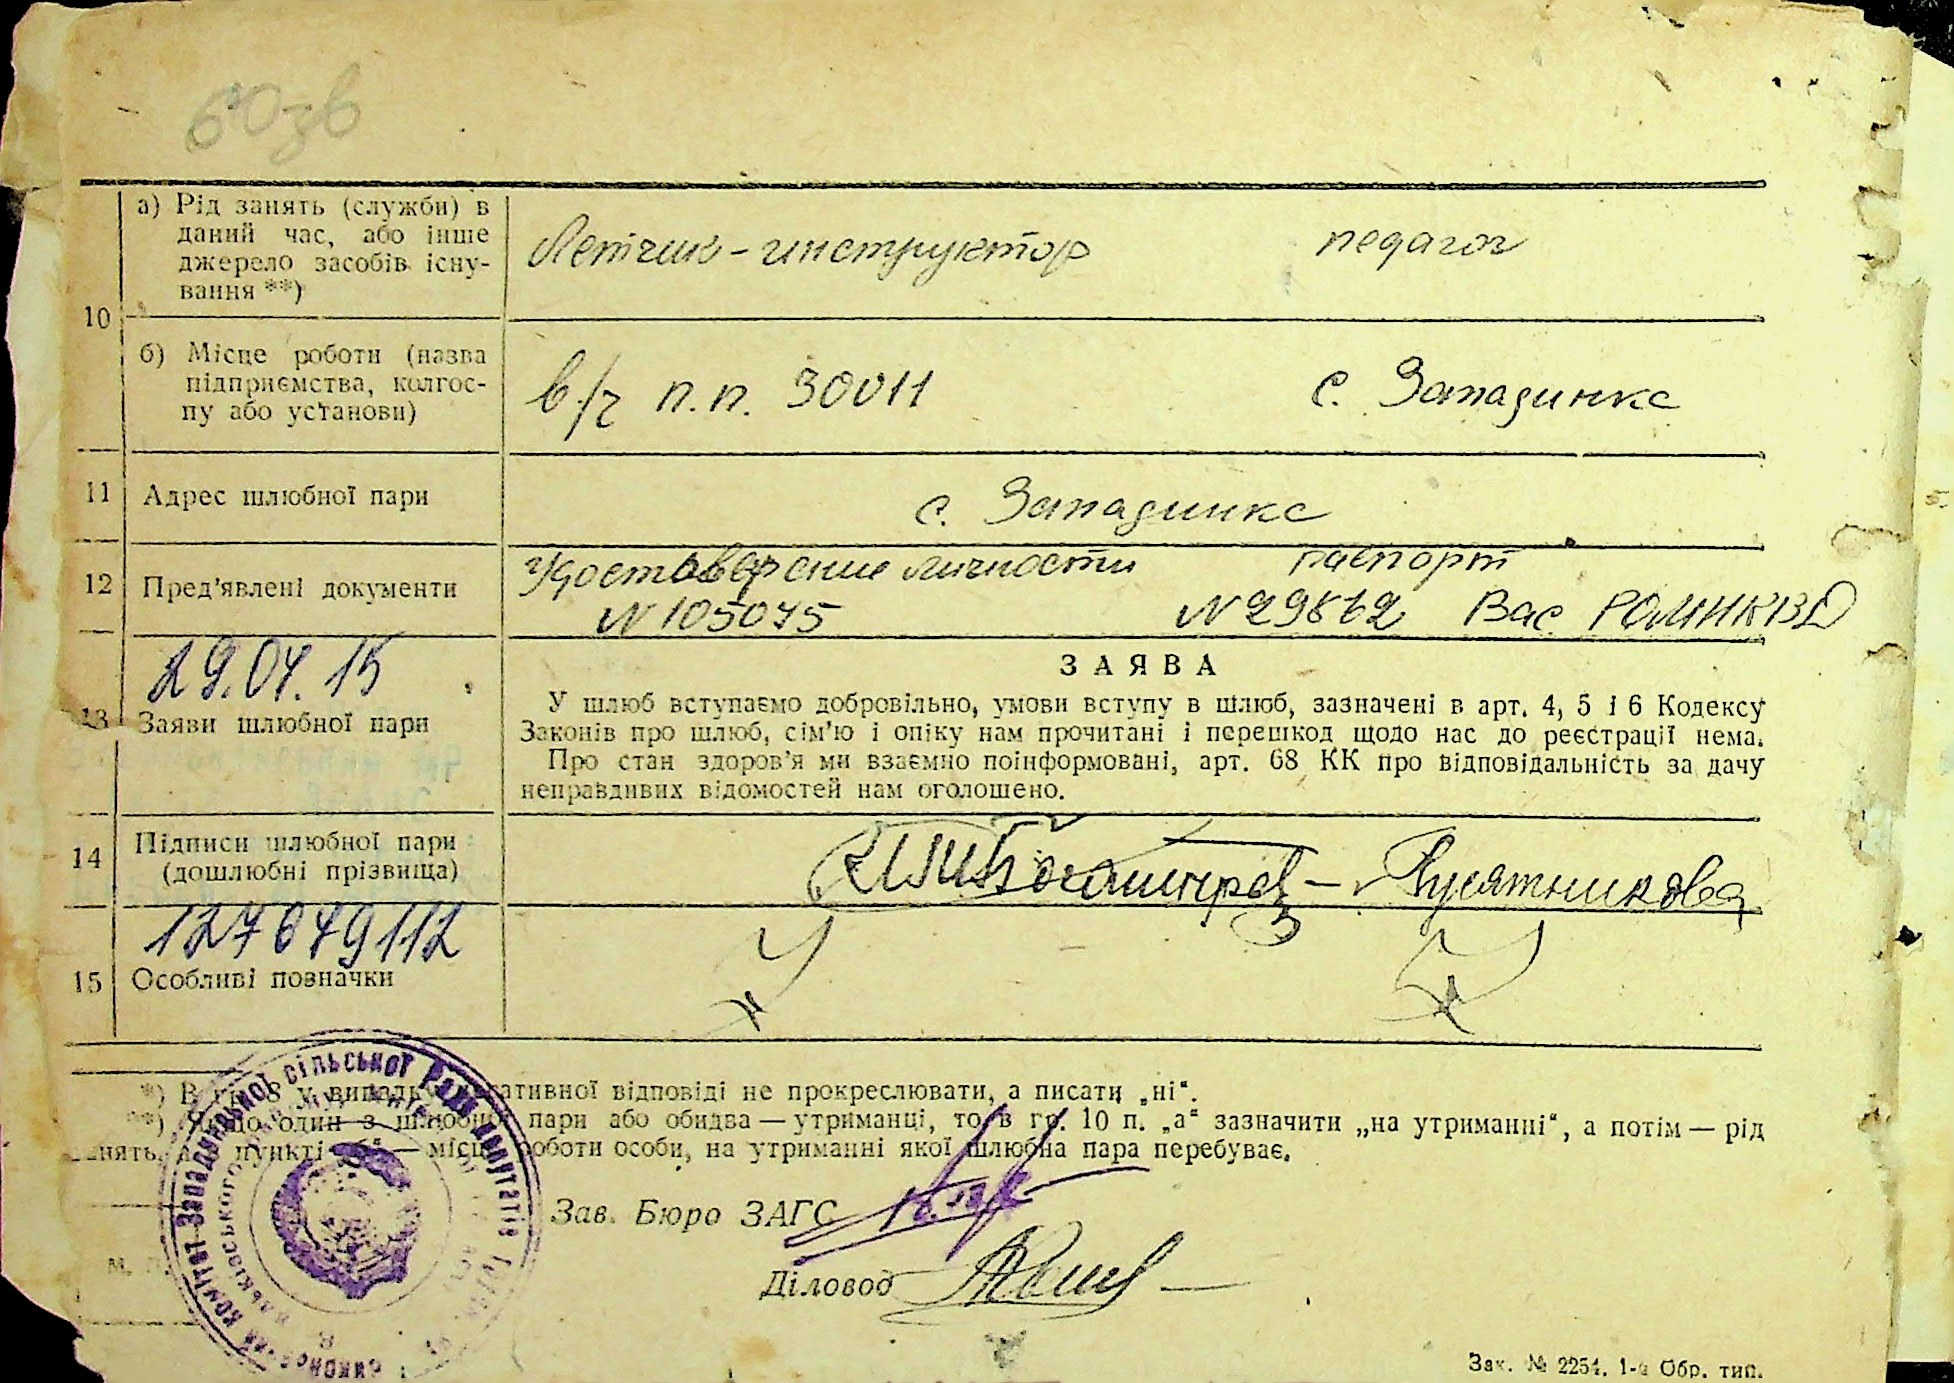 60зв
а) Рід занять (служби) в
даний час, або інше
джерело засобів існу-
вання **)
Летчик-инструктор
педагог
10
б) Місце роботи (назва
підприємства, колгос-
пу або установи)
в/ч п.п. 30011
с. Западинке
11
Адрес шлюбної пари
с. Западинке
12
Пред'явлені документи
Удостоверение личности
N 105045
паспорт
N 29862 Вас РОМНКВД
29.04.15
13
Заяви шлюбної пари
ЗАЯВА
У шлюб вступаємо добровільно, умови вступу в шлюб, зазначені в арт. 4, 5 і 6 Кодексу
Законів про шлюб, сім'ю і опіку нам прочитані і перешкод щодо нас до реєстрації нема.
Про стан здоров'я ми взаємно поінформовані, арт. 68 КК про відповідальність за дачу
неправдивих відомостей нам оголошено.
14
Підписи шлюбної пари
(дошлюбні прізвища)
127649112
15
Особливі позначки
*) В гр. 8 у випадку негативної відповіді не прокреслювати, а писати „ні“.
**) Якщо один з шлюбної пари або обидва — утриманці, то в гр. 10 п. „а“ зазначити „на утриманні“, а потім — рід
занять, а в пункті „б“ — місце роботи особи, на утриманні якої шлюбна пара перебуває.
Западинської сільської Ради депутатів
Зав. Бюро ЗАГС
Діловод
Зак. № 2254. 1-а Обр. тип.